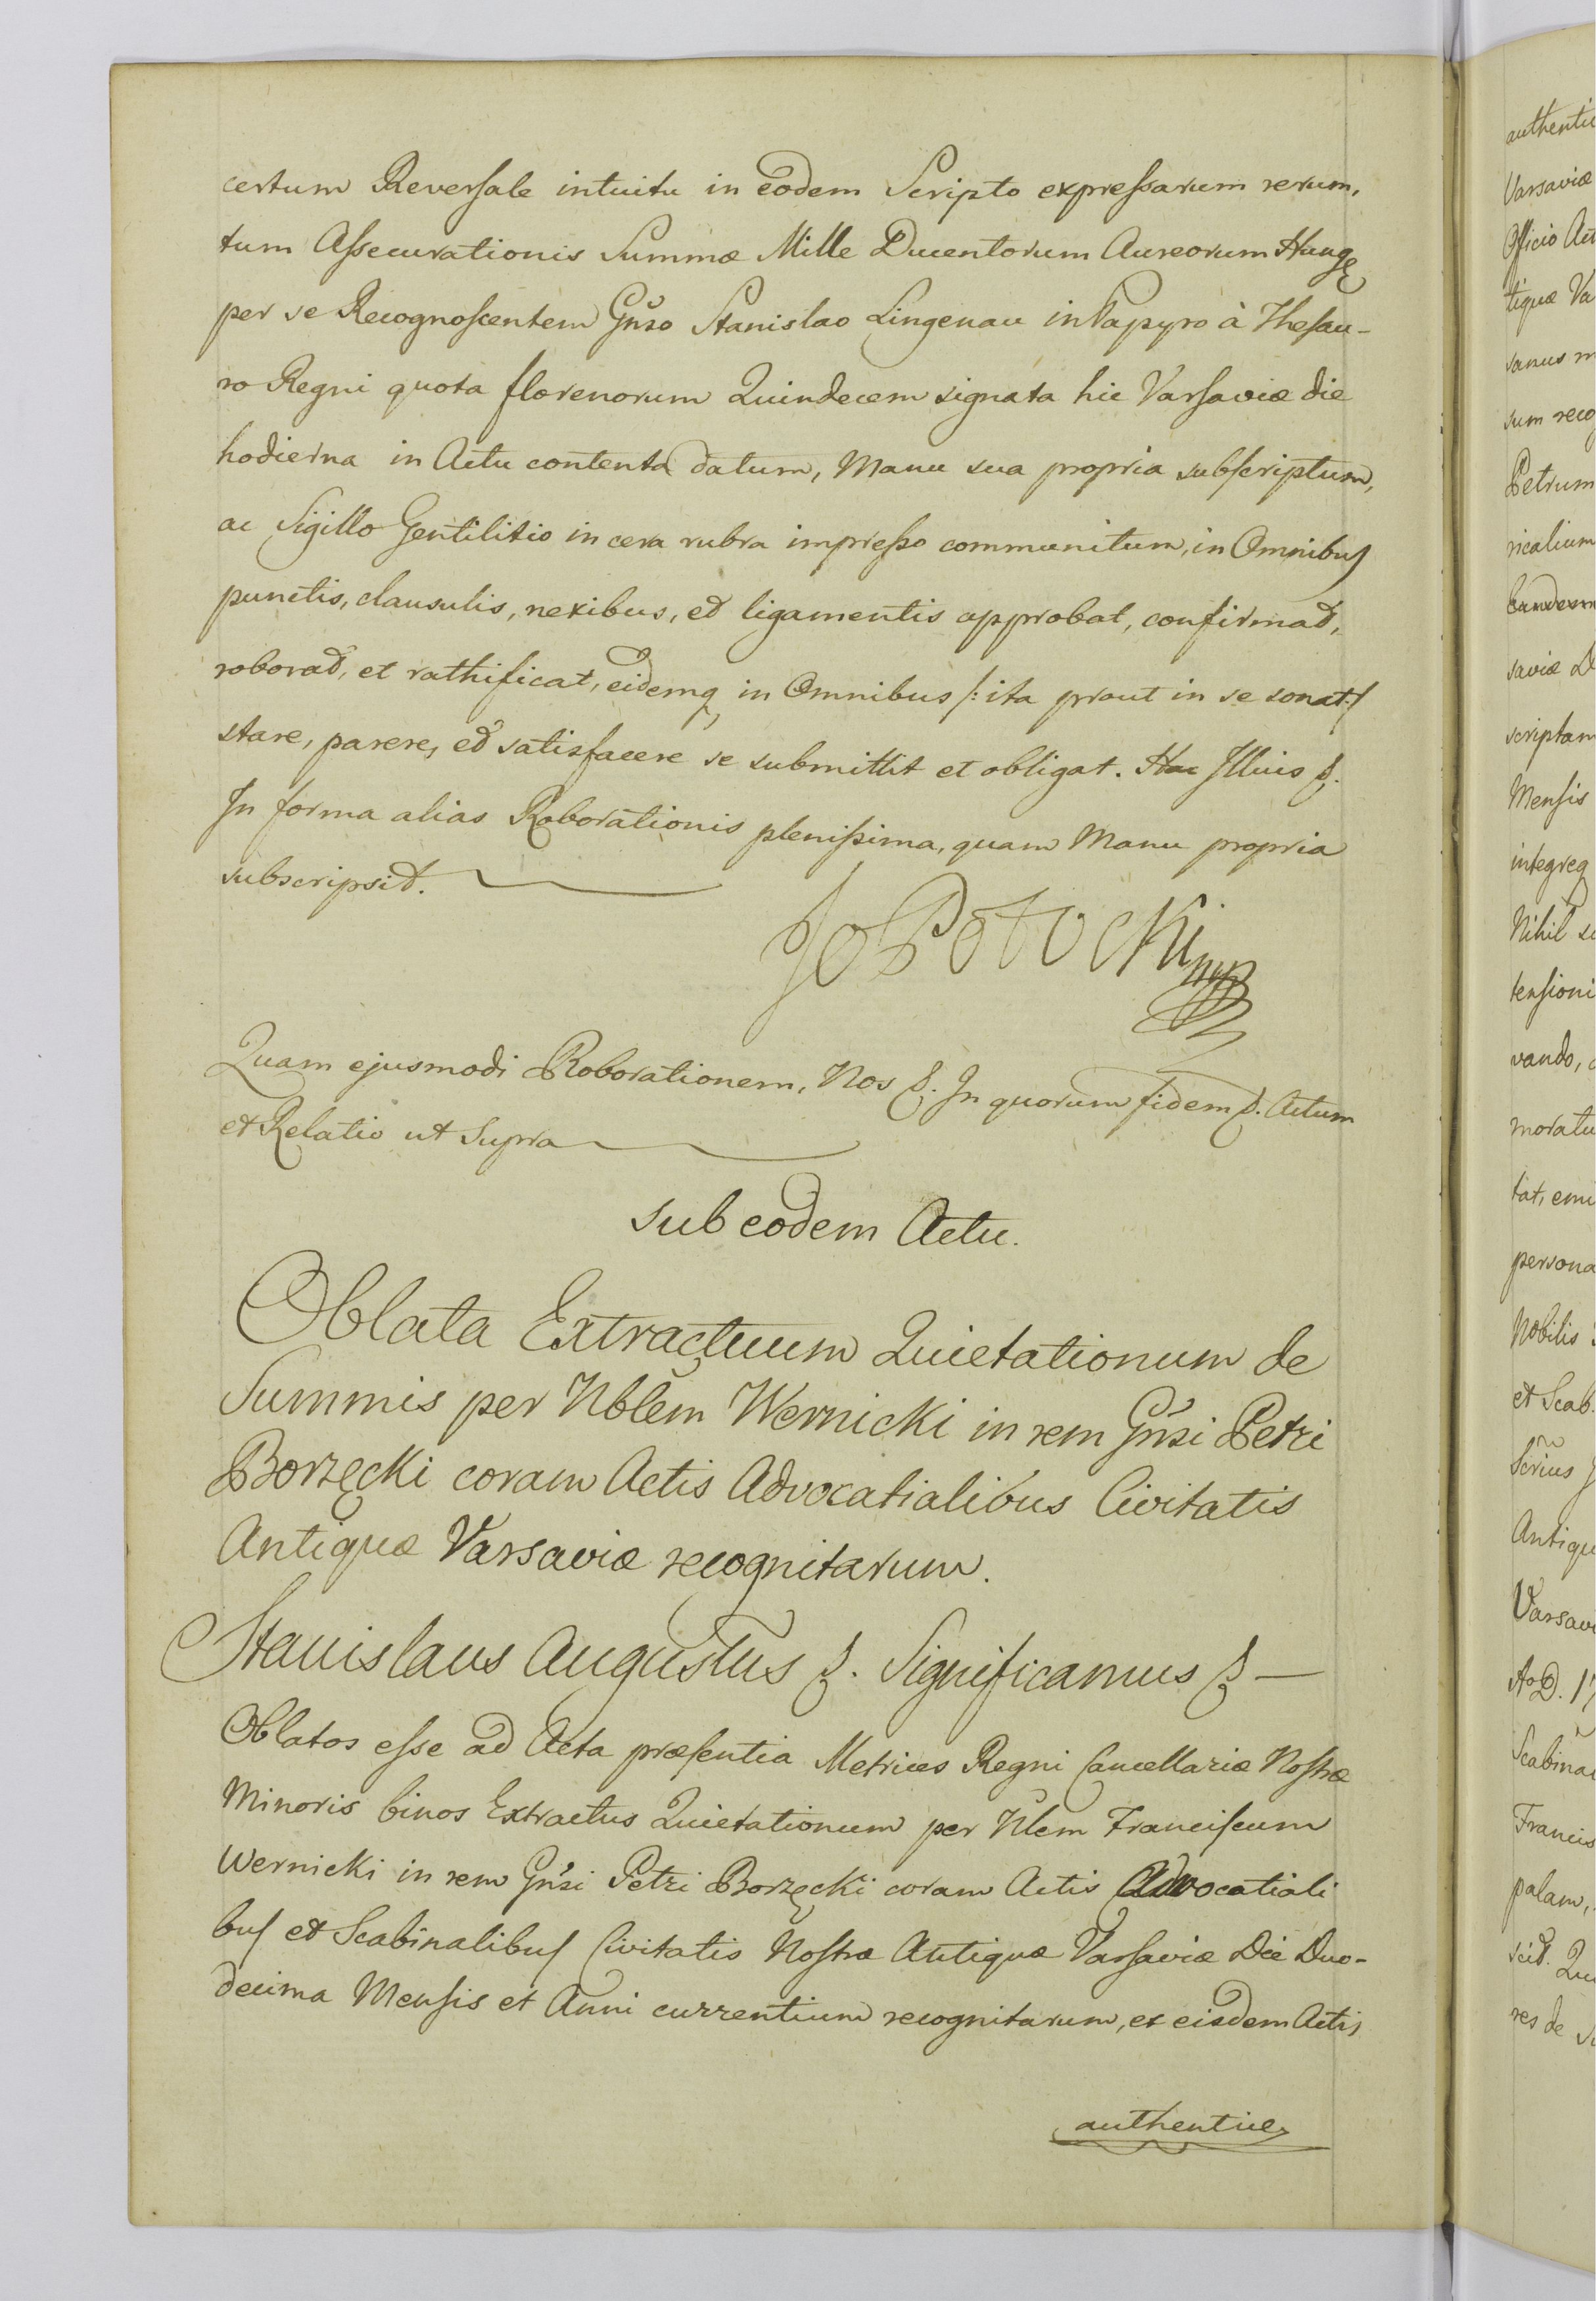 certum Reversale intuitu in eodem Scripto expressarum rerum,
tum Assecurationis Summæ Mille Ducentorum Aureorum Hungc
per se Recognoscentem Gnso Stanislao Lingenau in Papyro à Thesau-
ro Regni quota florenorum Quindecem signata hic Varsaviæ die
hodierna in Actu contenta datum, Manu sua propria subscriptum,
ac Sigillo Gentilitio in cera rubra impresso communitum, in Omnibus
punctis, clausulis, nexibus, et ligamentis approbat, confirmat,
roborat, et rathificat, eidemq in Omnibus /: ita prout in se sonat :/
stare, parere, et satisfacere se submittit et obligat. Illius &.
In forma alias Roborationis plenissima, quam Manu propria
subscripsit.
Jo Potocki mp
Quam ejusmodi Roborationem, Nos &. In quorum fidem &. Actum
et Relatio ut Supra
Sub eodem Actu.
Oblata Extractuum Quietationum de
Summis per Nblem Wernicki in rem Gnsi Petri
Borzęcki coram Actis Advocatialibus Civitatis
Antiquæ Varsaviæ recognitarum.
Stanislaus Augustus &. Significamus &
Oblatos esse ad Acta præsentia Metrices Regni Cancellariæ Nostræ
Minoris binos Extractus Quietationum per Nlem Franciscum
Wernicki in rem Gnsi Petri Borzęcki coram Actis Advocatiali
bus et Scabinalibus Civitatis Nostræ Antiquæ Varsaviæ Die Duo-
decima Mensis et Anni currentium recognitarum, ex eisdem Actis
authentice
authentic
Varsaviæ
Officio Act
tiquæ Va
sum reco
Petrum
ricalium
saviæ D
scriptam
Mensis
integreq
Nihil
tensioni
vando,
moratu
persona
Nobilis
et Scab.
Antiqu
Varsavi
A D. 17
Scabina
Francis
palam,
res de